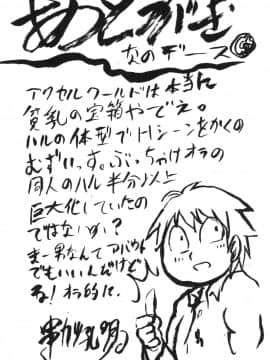 あとがき
炎のデース
アクセルワールドは本当に
貧乳の宝箱やでぇ。
ハルの体型でHシーンをかくの
むずいっす。ぶっちゃけオラの
同人のハル半分以上
巨大化していたの
ではないか?
まー男なんてアバウト
でもいいんだけど
る!オラ的に.